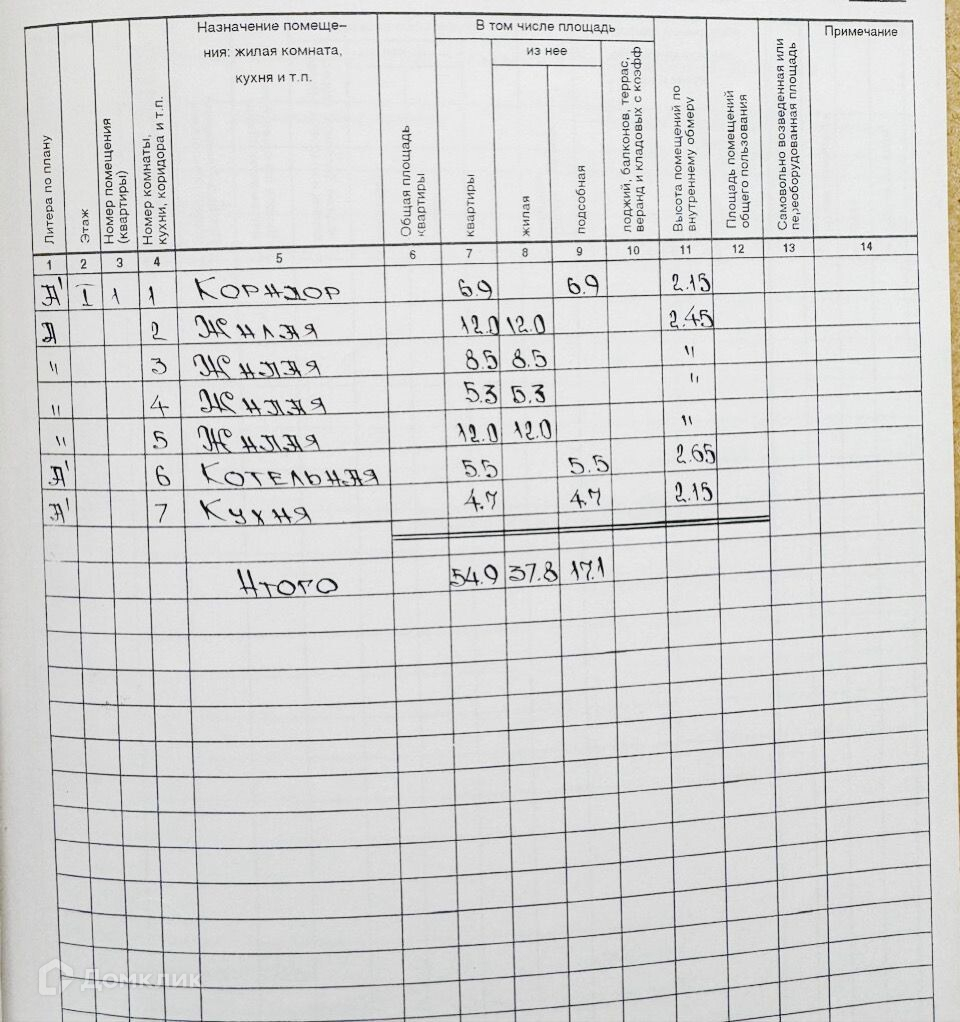 Литера по плану
Этаж
Номер помещения (квартиры)
Номер комнаты, кухни, коридора и т.п.
Назначение помеще-
ния: жилая комната,
кухня и т.п.
Общая площадь квартиры
В том числе площадь
из нее
квартиры
жилая
подсобная
лоджий, балконов, террас, веранд и кладовых с коэфф
Высота помещений по внутреннему обмеру
Площадь помещений общего пользования
Самовольно возведенная или переоборудованная площадь
Примечание
1 2 3 4 5 6 7 8 9 10 11 12 13 14
А' I 1 1 Коридор 6.9 6.9 2.15
А 2 Жилая 12.0 12.0 2.45
" 3 Жилая 8.5 8.5 "
" 4 Жилая 5.3 5.3 "
" 5 Жилая 12.0 12.0 "
А' 6 Котельная 5.5 5.5 2.65
А' 7 Кухня 4.7 4.7 2.15
Итого 54.9 37.8 17.1
Домклик